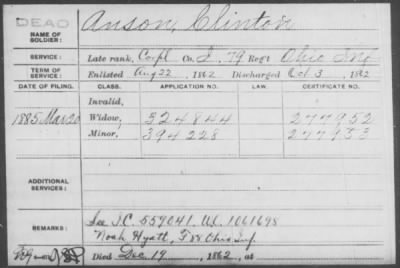 DEAD
Anson, Clinton
NAME OF SOLDIER:
SERVICE: Late rank, Corpl Co. I, 79 Reg't Ohio Inf
TERM OF SERVICE: Enlisted Aug 22, 1862 Discharged Oct 3, 1862
DATE OF FILING. CLASS. APPLICATION NO. LAW. CERTIFICATE NO.
Invalid,
1885 Mar 20 Widow, 324844 277952
Minor, 394228 277953
ADDITIONAL SERVICES:
REMARKS: See I.C. 559041. W. 1061698
Noah Hyatt, F 88 Ohio Inf.
Died Dec 19, 1862, at